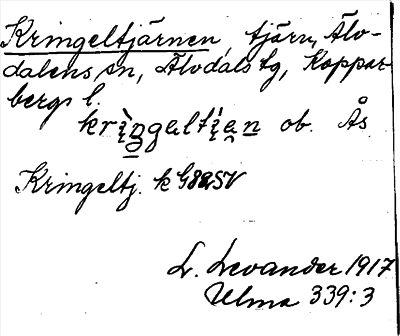 Kringeltjärnen, tjärn, Älv-
dalens sn, Älvdals tg, Koppar-
bergs l.
ob. Ås
Kringeltj. k G82SV
L. Levander 1917
Ulma 339:3